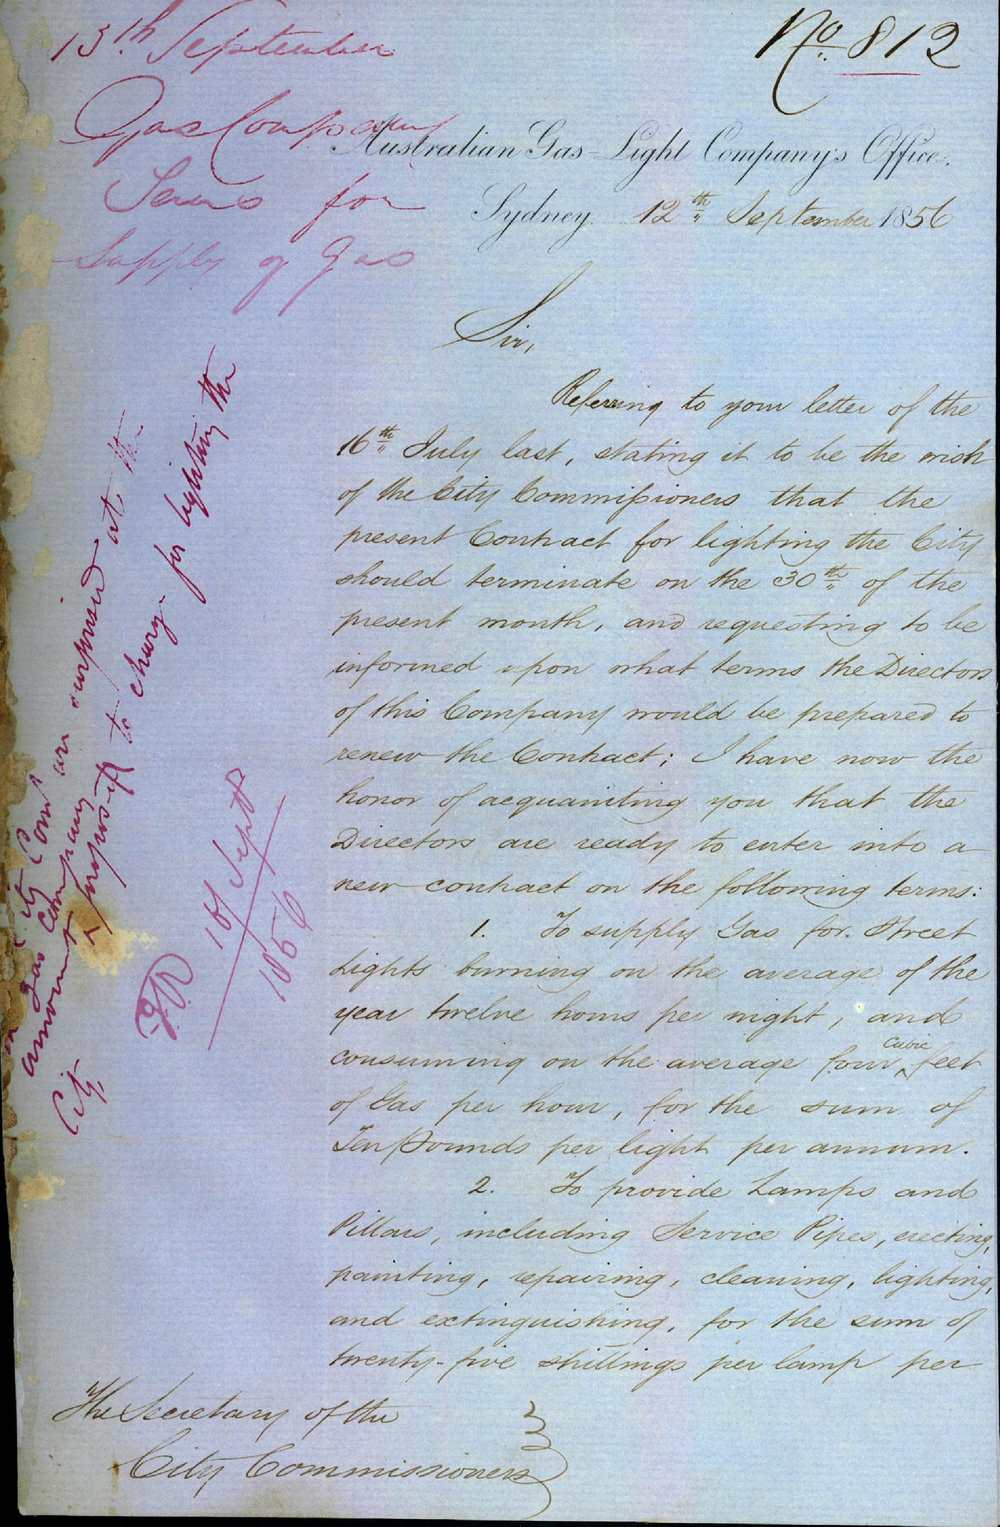 No. 812
13th September
Gas Company
Terms for
Supply of Gas
Australian Gas-Light Company's Office.
Sydney 12th September 1856
Sir,
Referring to your letter of the
16th July last, stating it to be the wish
of the City Commissioners that the
present Contract for lighting the City
should terminate on the 30th of the
present month, and requesting to be
informed upon what terms the Directors
of this Company would be prepared to
renew the Contract; I have now the
honor of acquainting you that the
Directors are ready to enter into a
new contract on the following terms:
1. To supply Gas for Street
Lights burning on the average of the
year twelve hours per night, and
consuming on the average four Cubic feet
of Gas per hour, for the sum of
Ten Pounds per light per annum.
2. To provide Lamps and
Pillars, including Service Pipes, erecting,
painting, repairing, cleaning, lighting,
and extinguishing, for the sum of
twenty-five shillings per lamp per
The Secretary of the
City Commissioners
City Coms are surprised at the
amount Gas Company propose to charge for lighting the
City
16 Sept
1856